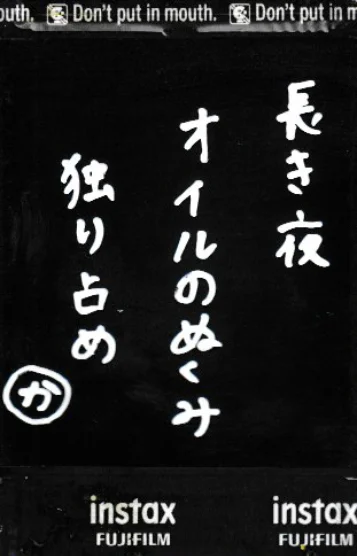 outh. Don't put in mouth. Don't put in m
長き夜
オイルのぬくみ
独り占め
か
instax instax
FUJIFILM FUJIFILM